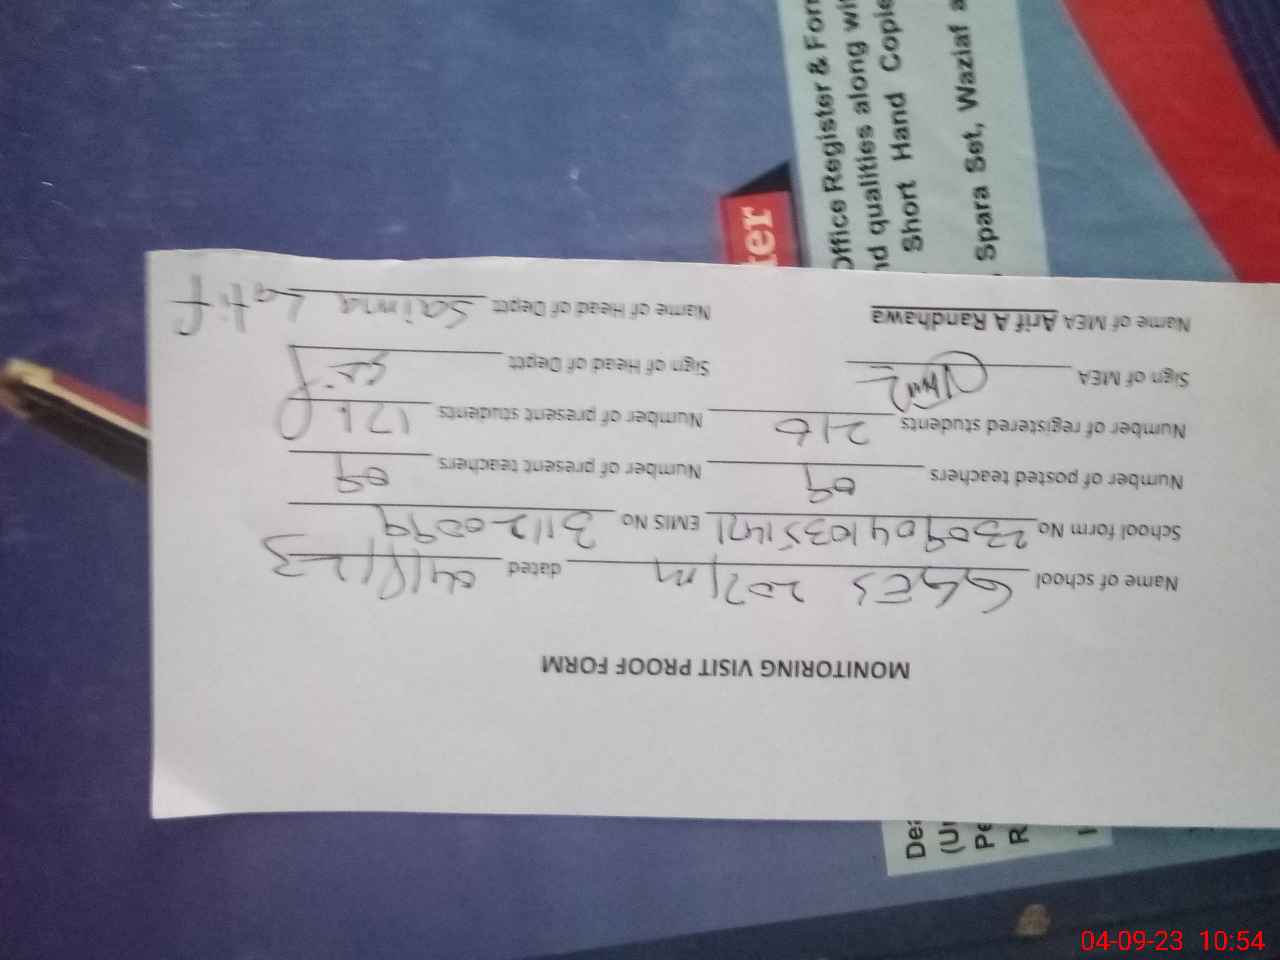 MONITORING VISIT PROOF FORM
Name of school GGES 207/m dated 04/9/23
School form No 23090410351471 EMIS No 31120099
Number of posted teachers 09 Number of present teachers 09
Number of registered students 216 Number of present students
Sign of MEA Sign of Head of Deptt
Name of MEA Arif A Randhawa Name of Head of Deptt Saima Latif
Office Register &
qualities along
Short Hand
Spara Set, Waziaf
04-09-23 10:54